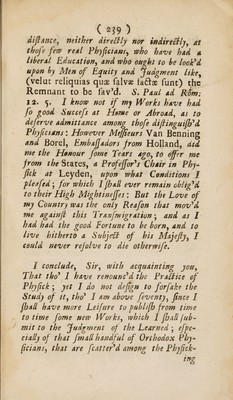 ( 239 )
distance, neither directly nor indirectly, at
those few real Physicians, who have had a
liberal Education, and who ought to be look'd
upon by Men of Equity and Judgment like,
(velut reliquias quæ salvæ factæ sunt) the
Remnant to be sav'd. S. Paul ad Rōm:
12. 5. I know not if my Works have had
so good Success at Home or Abroad, as to
deserve admittance among those distinguish'd
Physicians: However Messieurs Van Benning
and Borel, Embassadors from Holland, did
me the Honour some Years ago, to offer me
from the States, a Professor's Chair in Phy-
sick at Leyden, upon what Conditions I
pleased; for which I shall ever remain oblig'd
to their High Mightinesses: But the Love of
my Country was the only Reason that mov'd
me against this Transmigration; and as I
had had the good Fortune to be born, and to
live hitherto a Subject of his Majesty, I
could never resolve to die otherwise.
I conclude, Sir, with acquainting you,
That tho' I have renounc'd the Practice of
Physick; yet I do not design to forsake the
Study of it, tho' I am above seventy, since I
shall have more Leisure to publish from time
to time some new Works, which I shall sub-
mit to the Judgment of the Learned; espe-
cially of that small handful of Orthodox Phy-
sicians, that are scatter'd among the Physick-
ing